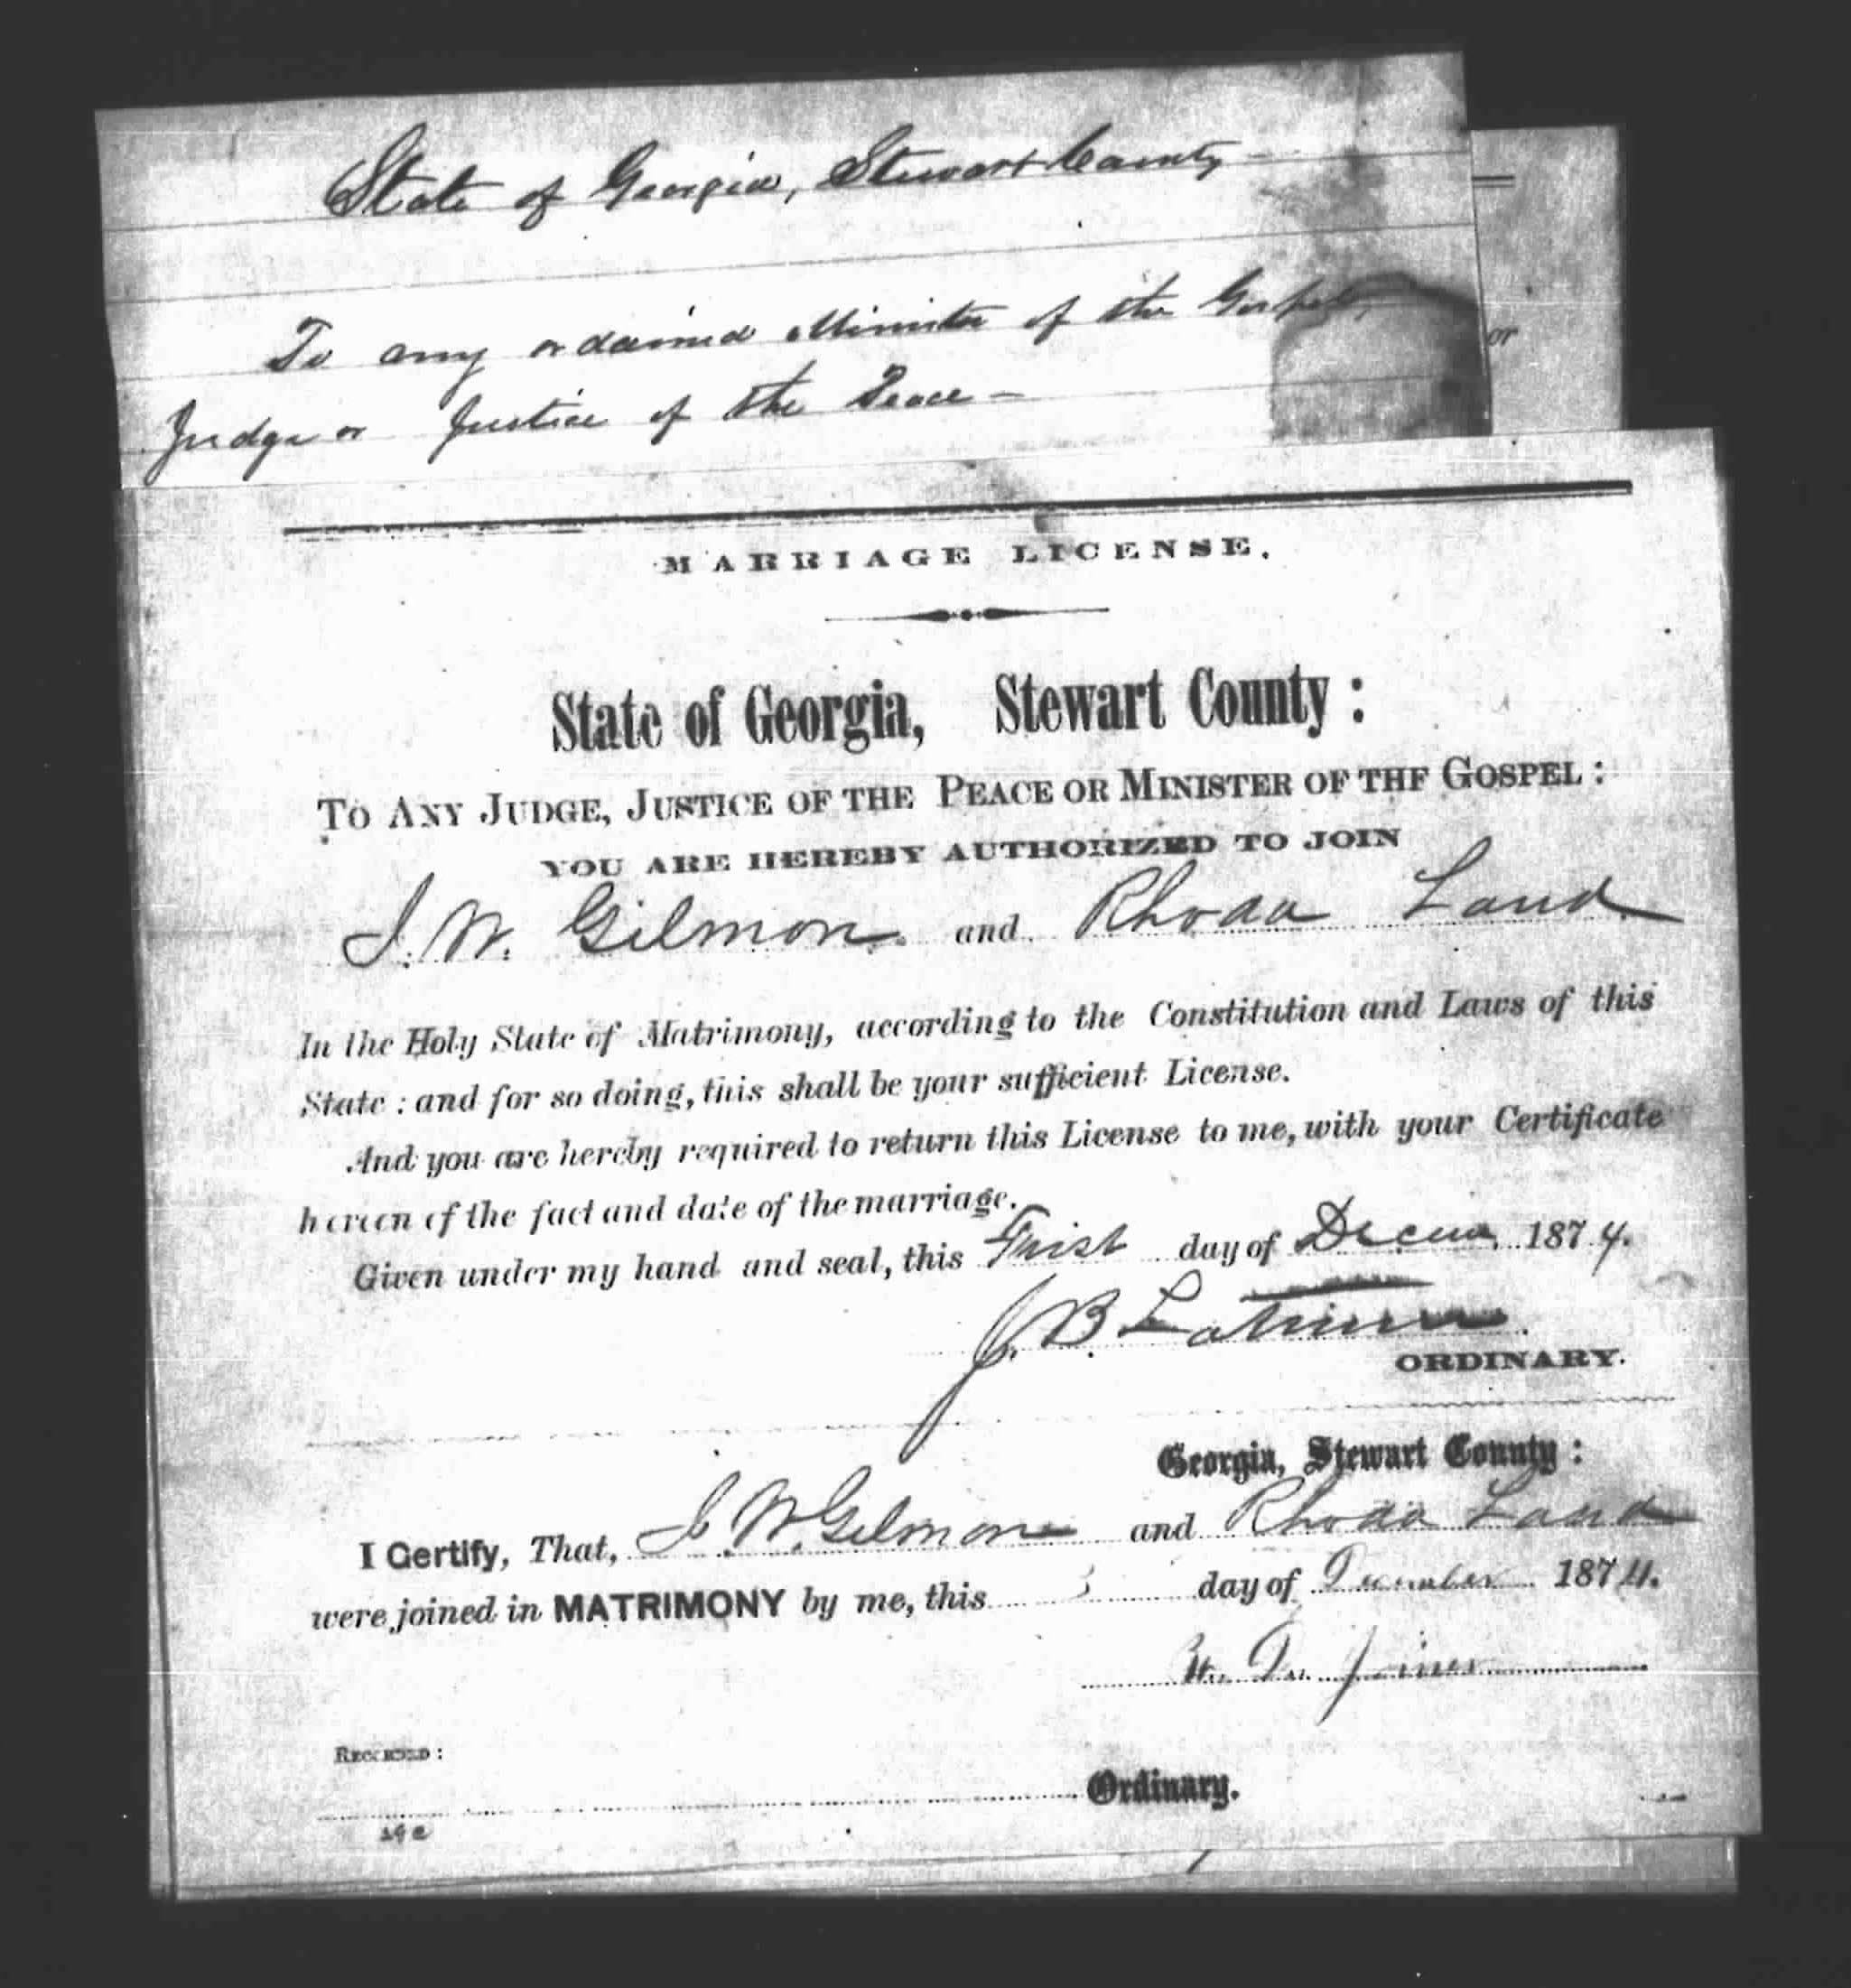 State of Georgia, Stewart County
To any ordained Minister of the Gospel,
or
Judge or Justice of the Peace —
MARRIAGE LICENSE.
State of Georgia, Stewart County :
TO ANY JUDGE, JUSTICE OF THE PEACE OR MINISTER OF THF GOSPEL :
YOU ARE HEREBY AUTHORIZED TO JOIN
J. W. Gilmon and Rhoda Land
In the Holy State of Matrimony, according to the Constitution and Laws of this
State : and for so doing, this shall be your sufficient License.
And you are hereby required to return this License to me, with your Certificate
hereon of the fact and date of the marriage.
Given under my hand and seal, this First day of Decem 1874.
J. B. Latimer
ORDINARY.
Georgia, Stewart County :
I Certify, That, J. W. Gilmon and Rhoda Land
were joined in MATRIMONY by me, this 3 day of December 1874.
Joiner
RECORDED :
Ordinary.